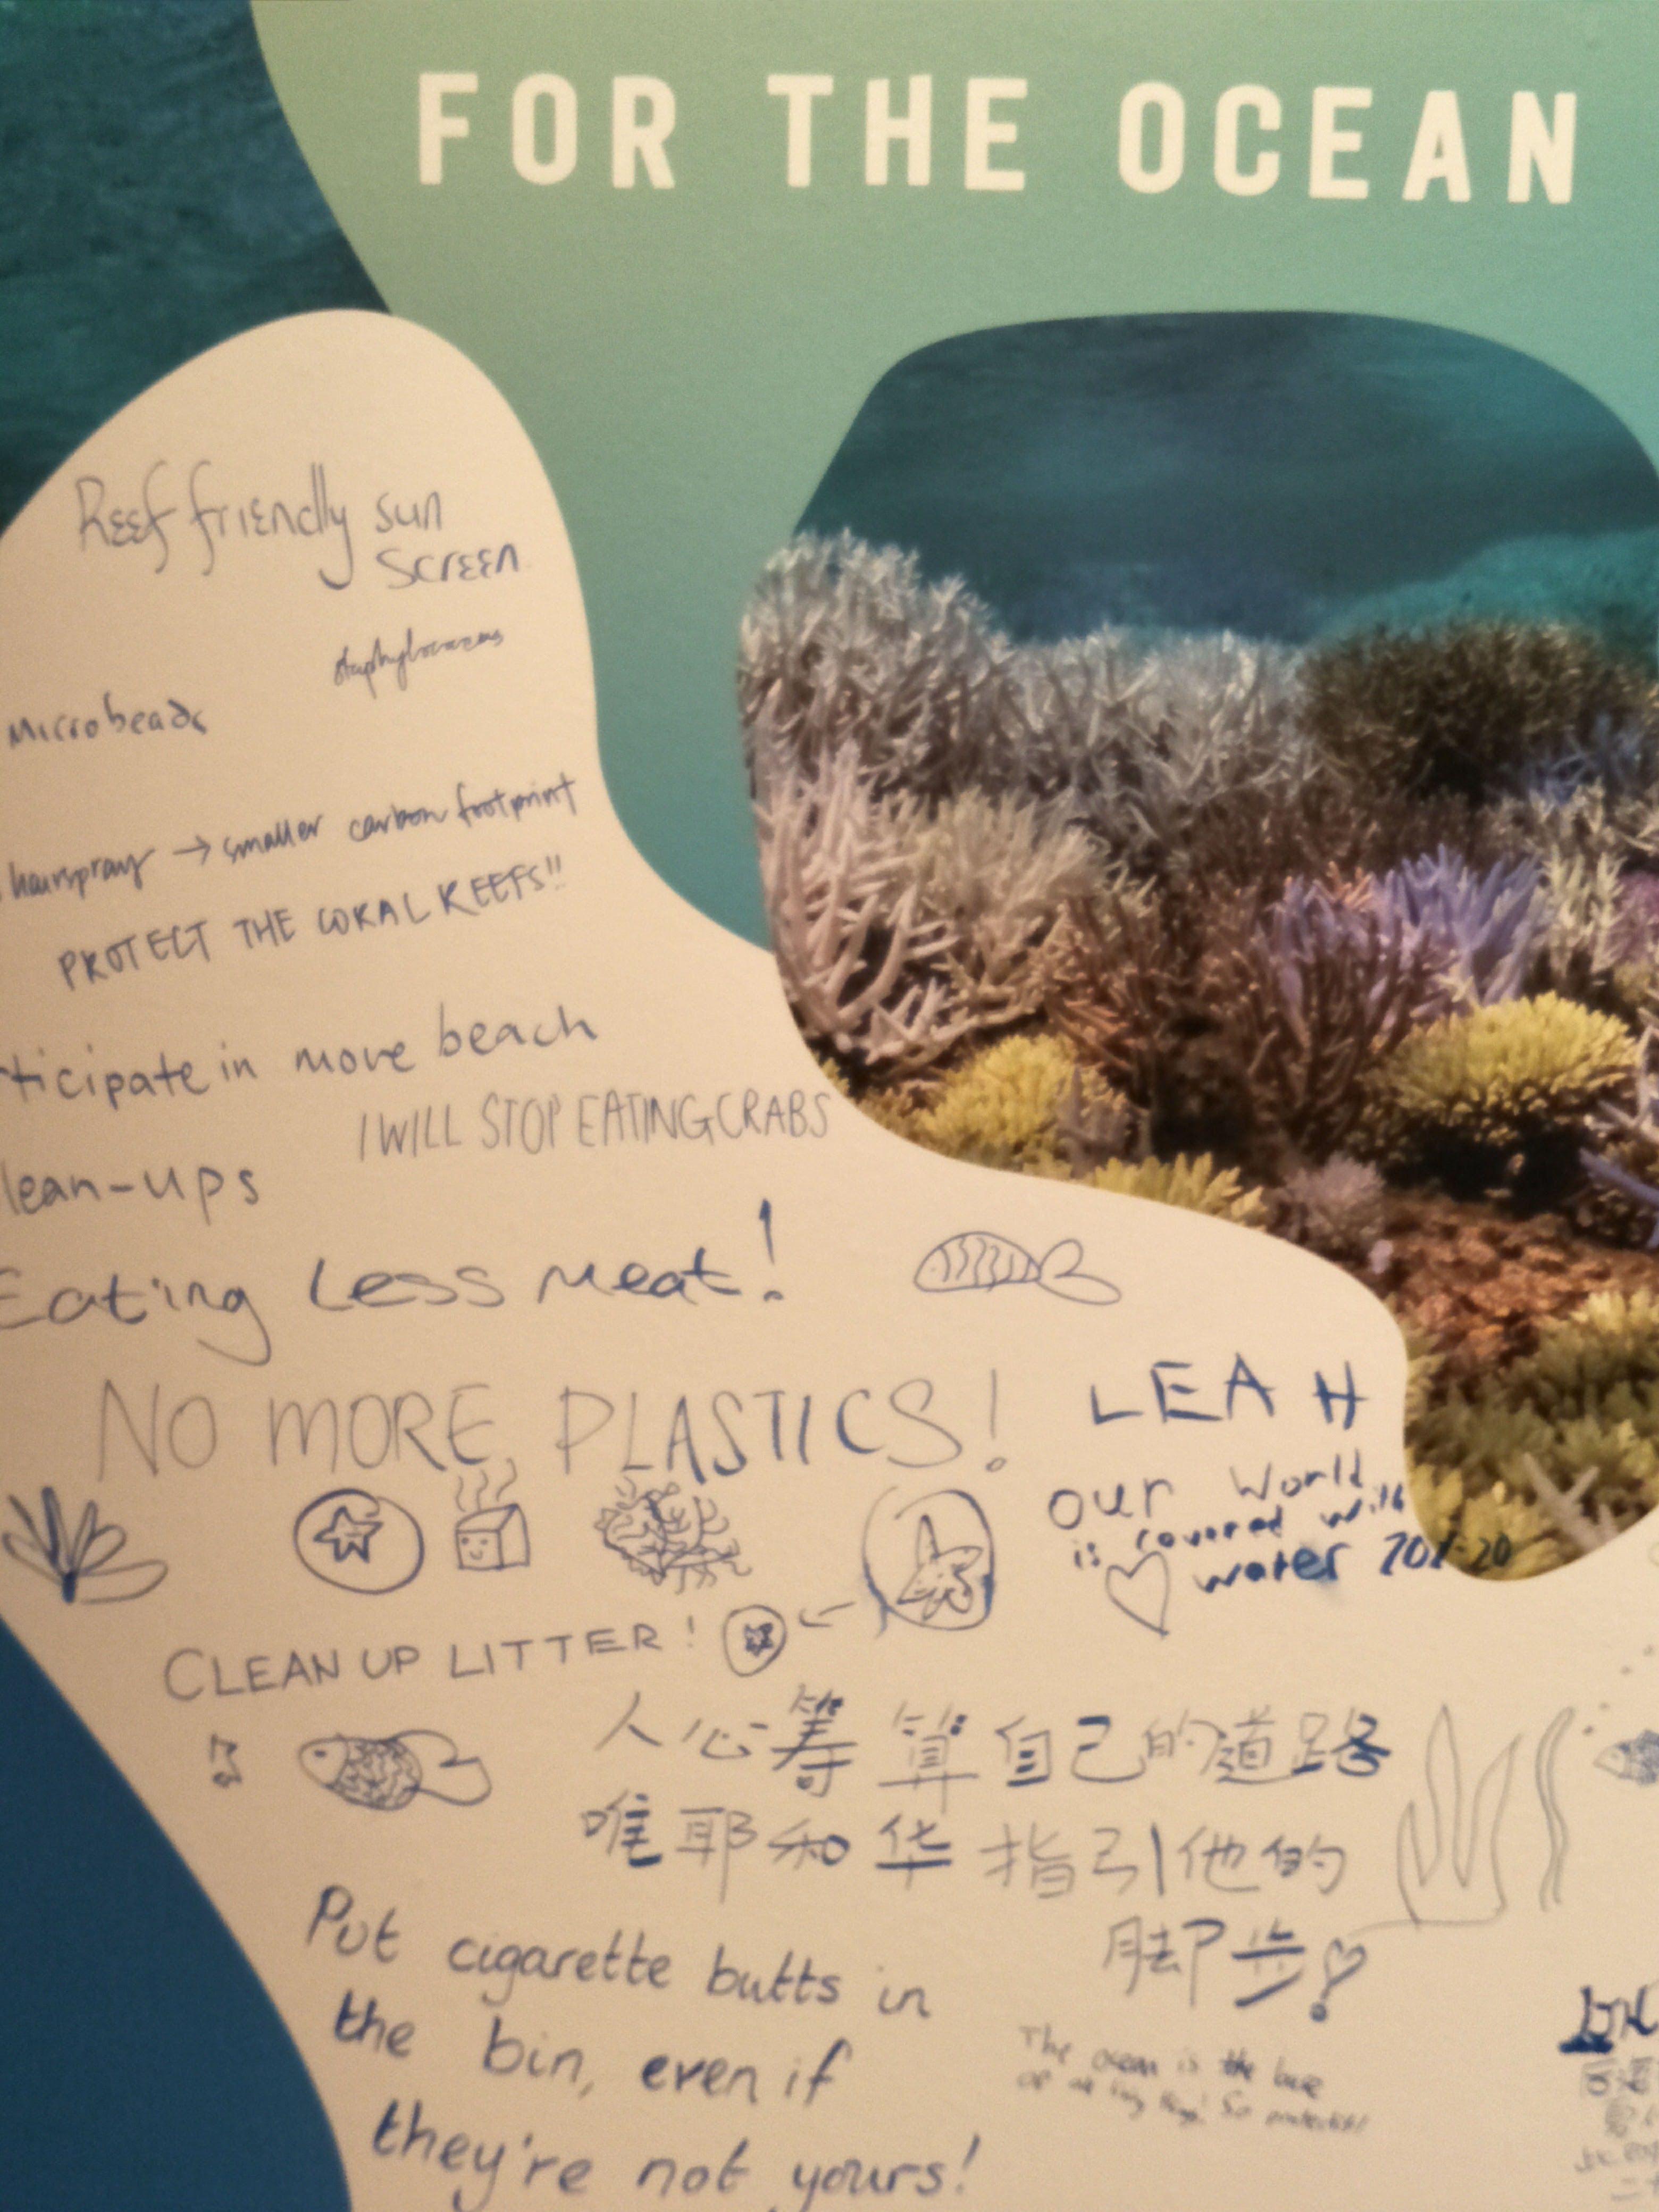 FOR THE OCEAN
Reef friendly sun
screen
Microbeads
hairspray → smaller carbon footprint
PROTECT THE CORAL REEFS!!
ticipate in more beach
I WILL STOP EATING CRABS
lean-ups
Eating Less Meat!
NO MORE PLASTICS!
LEAH
our world
is covered with
water 70%
CLEAN UP LITTER!
人心筹算自己的道路
唯耶和华指引他的
脚步
Put cigarette butts in
the bin, even if
they're not yours!
The ocean is the